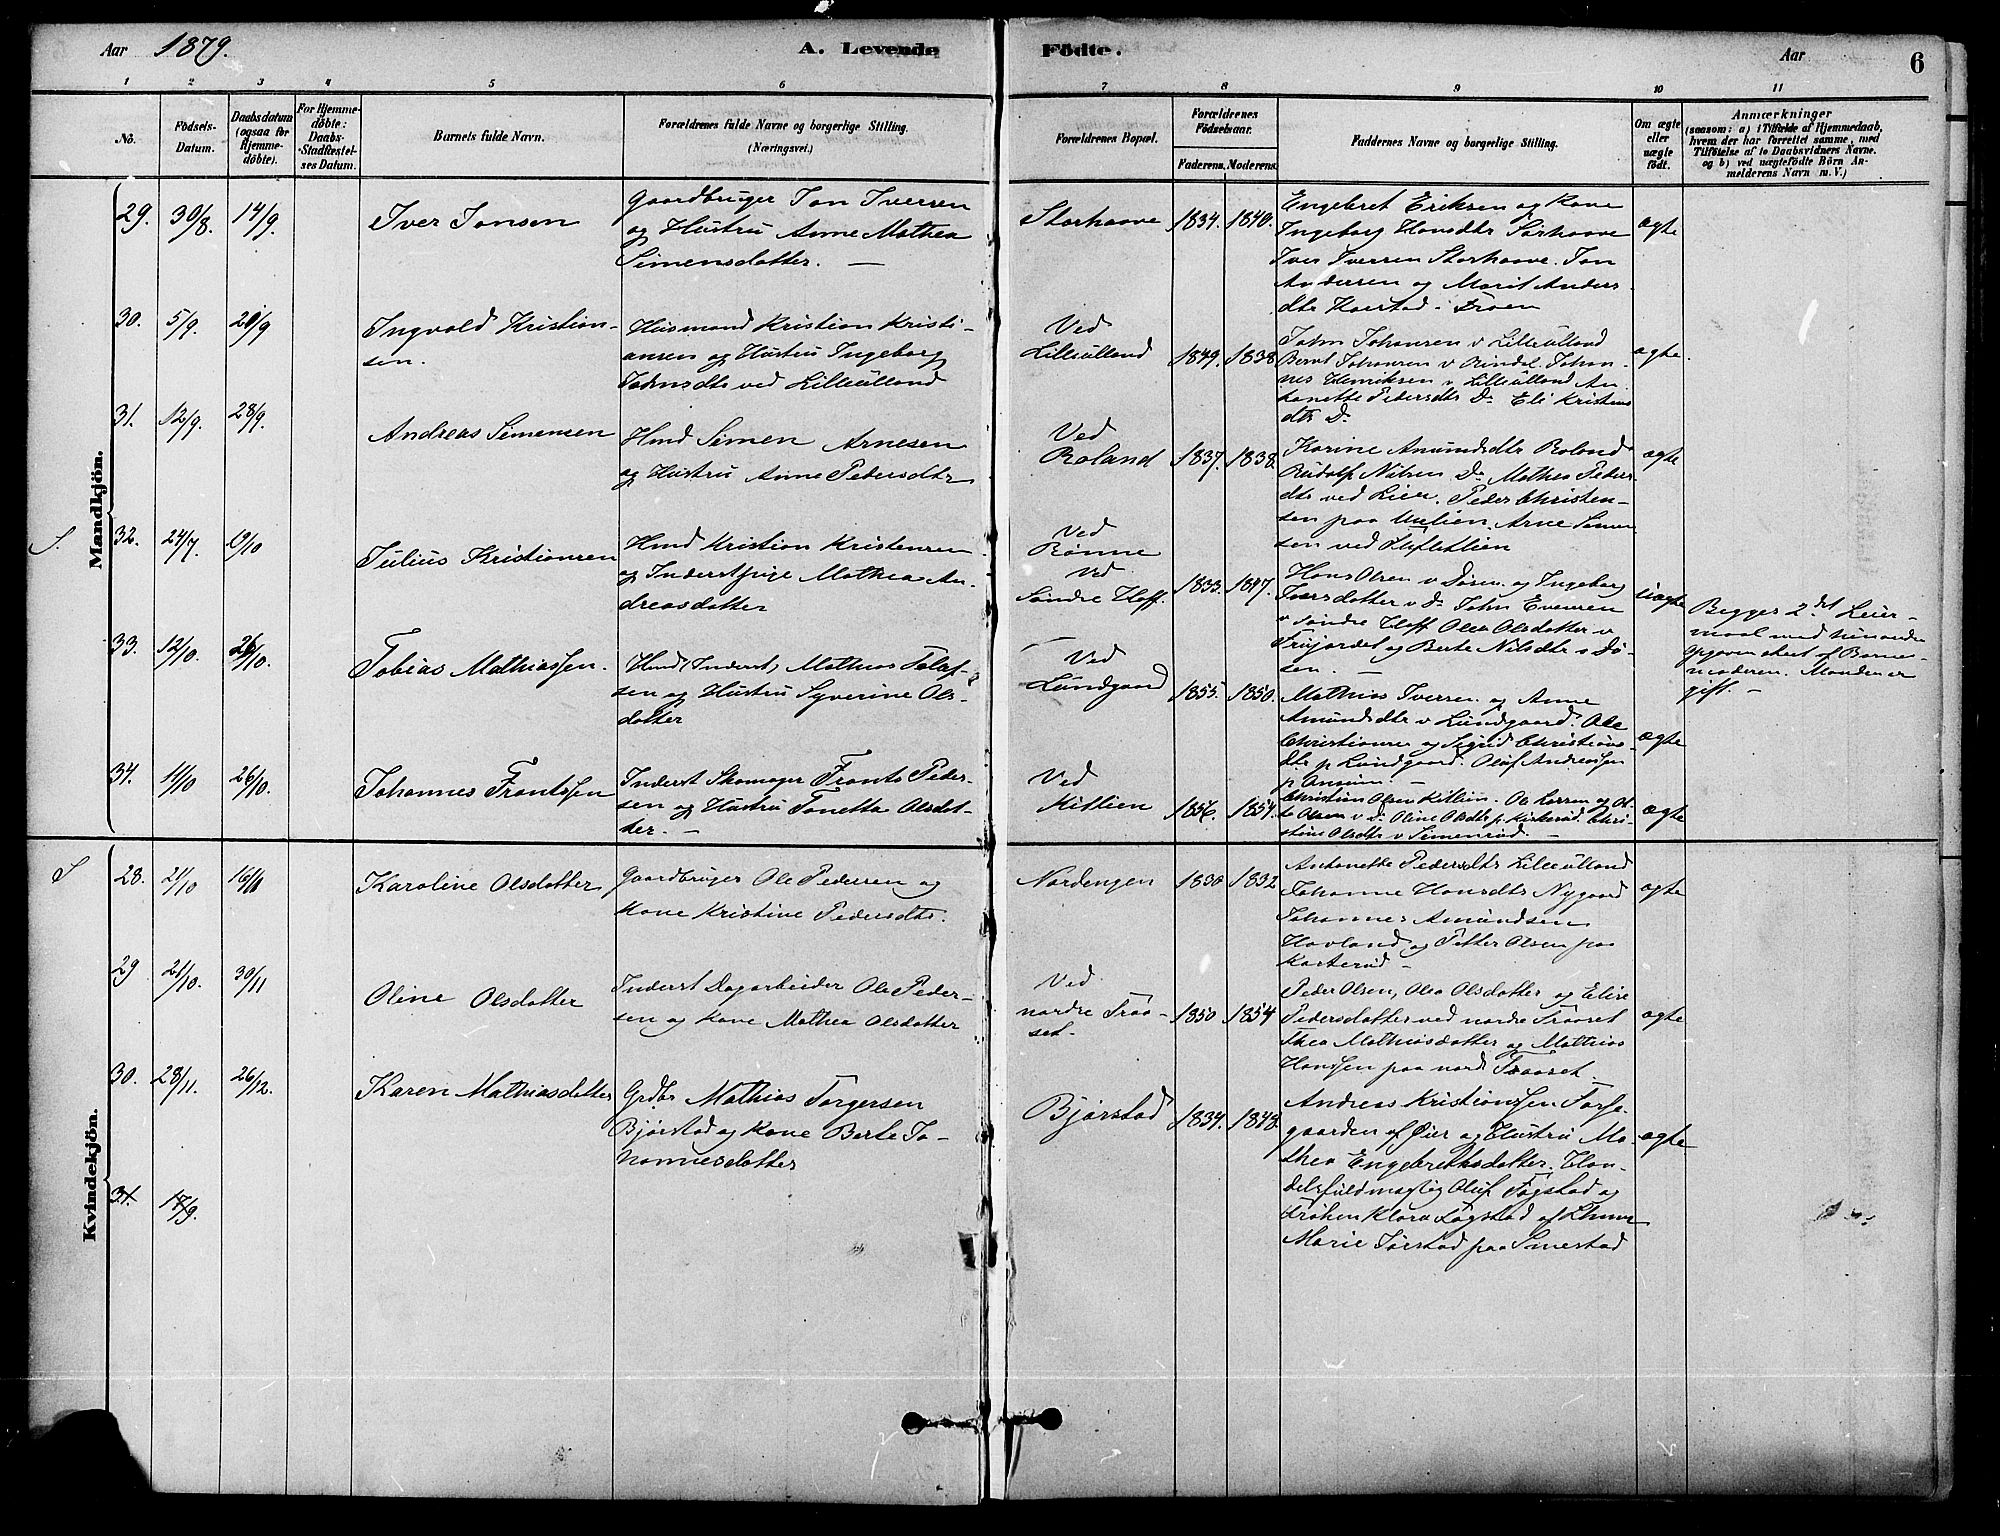 Aar 1879.
A. Levende Födte.
Aar
6
1 2 3 4 5 6 7 8 9 10 11
No.
Födsels-
Datum.
Daabsdatum
(ogsaa for
Hjemme-
döbte).
For Hjemme-
döbte:
Daabs-
Stadfæstel-
ses Datum.
Barnets fulde Navn.
Forældrenes fulde Navne og borgerlige Stilling.
(Næringsvei.)
Forældrenes Bopæl.
Forældrenes
Födselsaar.
Faderens. Moderens.
Faddernes Navne og borgerlige Stilling.
Om ægte
eller
uægte
födt.
Anmærkninger
(saasom: a) i Tilfælde af Hjemmedaab,
hvem der har forrettet samme, med
Tilföielse af to Daabsvidners Navne.
og b) ved uægtefödte Börn An-
melderens Navn m. V.)
Mandkjön.
29. 30/8. 14/9.
Iver Jonsen
Gaardbruger Jon Iversen
og Hustru Anne Mathea
Simensdatter. —
Storhaave
1834. 1840.
Engebret Eriksen og Kone
Ingeborg Hansdtr Sørhaave
Iver Iversen Storhaave. Jon
Andersen og Marit Anders
dtr Kaerstad i Froen
ægte
30. 5/9. 20/9
Ingvald Kristian-
sen.
Husmand Kristian Kristi-
ansen og Hustru Ingeborg
Johnsdtr ved Lilleulland
Ved
Lilleulland
1849. 1838
John Johansen v Lilleulland
Bernt Johansen v Rindal. Johan-
nes Henriksen v Lilleulland An-
tonette Pedersdtr Do Eli Kristens
dtr Do
ægte.
31. 12/9. 28/9
Andreas Simensen
Hmd Simen Arnesen
og Hustru Anne Pedersdtr
Ved
Roland
1837. 1838.
Karine Amundsdtr Roland
Rudolf Nilsen Do Mathea Peders
dtr ved Lien. Peder Christen-
sen paa Mælien. Arne Simen
sen ved Lufletlien
ægte
S.
32. 24/7. 19/10
Julius Kristiansen
Hmd Kristian Kristensen
og Inderstpige Mathea An-
dreasdatter
Ved
Rønne
Ved
Søndre Hoff.
1833. 1847.
Hans Olsen v Døsen og Ingeborg
Iversdatter v Do John Evensen
v søndre Hoff Olea Olsdatter v
Trøjordet og Berte Nilsdtr v Dø-
sen.
uægte
Begges 2det Leier-
maal med hinanden
opgivende af Barne-
moderen. Manden er
gift. —
33. 12/10. 26/10.
Tobias Mathiassen.
Hmd, Inderst, Mathias Tolef-
sen og Hustru Syverine Ols-
datter
Ved
Lundgaard
1855. 1850.
Mathias Iversen og Anne
Amundsdtr v Lundgaard. Ole
Christiansen og Sigrid Christians-
dtr p Lundgaard. Oluf Andreassen
p Ansum. —
ægte
34. 11/10 26/10.
Johannes Frantssen
Inderst Skomager Frants Peder-
sen og Hustru Tonetta Olsdat-
ter. —
Ved
Kittlien
1856. 1854.
Christian Olsen Kitlien. Ole Larsen og Ot-
to Olsen v Do Oline Olsdtr p. Kirkerud. Chri-
stine Olsdtr v Simenrud. —
ægte
Kvindekjön.
S
28. 2/10 16/11
Karoline Olsdatter
Gaardbruger Ole Pedersen og
Kone Kristine Pedersdtr.
Nordengen
1830 1832
Antonette Pedersdtr Lilleulland
Johanne Hansdtr Nygaard
Johannes Amundsen
Havland og Petter Olsen paa
Karterud —
ægte
29 21/10. 30/11
Oline Olsdatter
Inderst Dagarbeider Ole Peder-
sen og Kone Mathea Olsdatter
Ved
nordre Traa-
set.
1850 1854
Peder Olsen, Olea Olsdatter og Elise
Pedersdatter ved nordre Traaset
Thea Mathiasdatter og Mathias
Hanssen paa nord Traaset.
ægte
30. 28/11. 26/12.
Karen Mathiasdatter
Grdbr Mathias Torgersen
Bjørstad og Kone Berte Jo-
hannesdatter
Bjørstad
1834. 1848.
Andreas Kristianssen Forse-
gaarden af Øier og Hustru Ma-
thea Engebretsdatter. Han-
delsfuldmægtig Oluf Fogstad og
Frøken Klara Fogstad af Lhmr
Marie Jørstad paa Smestad
ægte
31. 17/9.